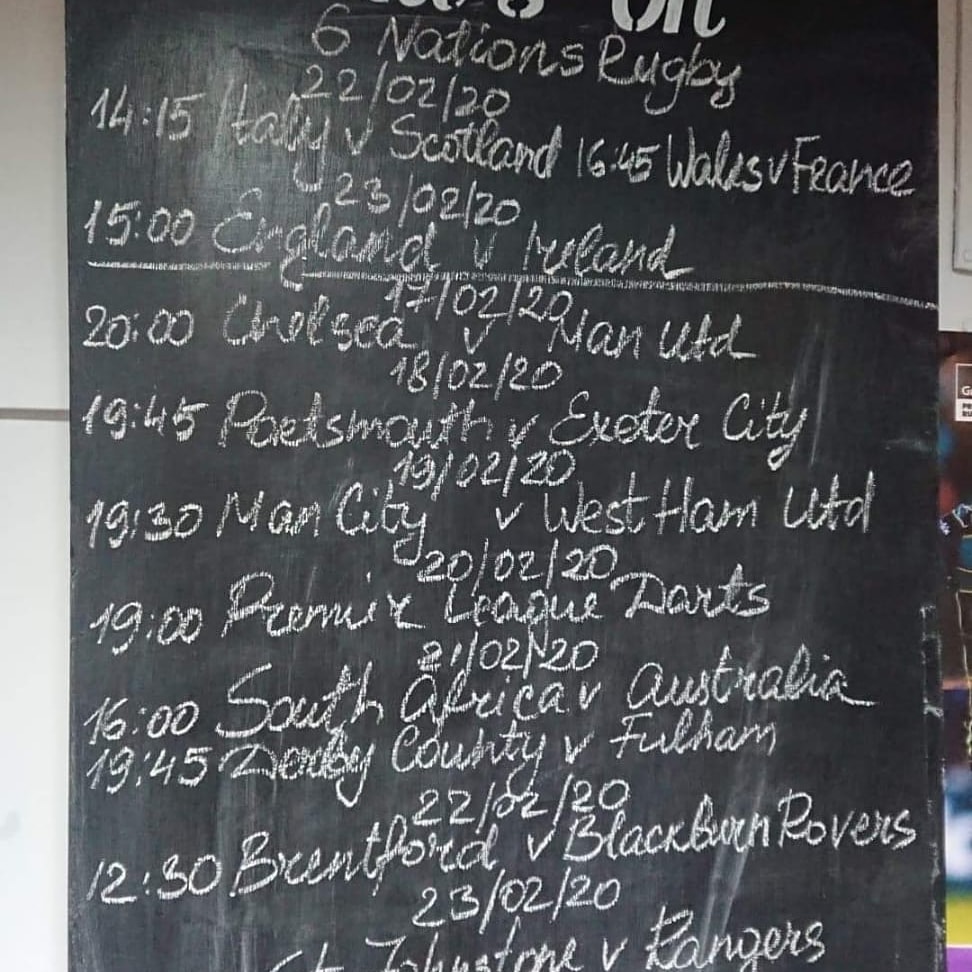 On
6 Nations Rugby
22/02/20
14:15 Italy v Scotland 16:45 Wales v France
23/02/20
15:00 England v Ireland
17/02/20
20:00 Chelsea v Man Utd
18/02/20
19:45 Portsmouth v Exeter City
19/02/20
19:30 Man City v West Ham Utd
20/02/20
19:00 Premier League Darts
21/02/20
16:00 South Africa v Australia
19:45 Derby County v Fulham
22/02/20
12:30 Brentford v Blackburn Rovers
23/02/20
St Johnstone v Rangers